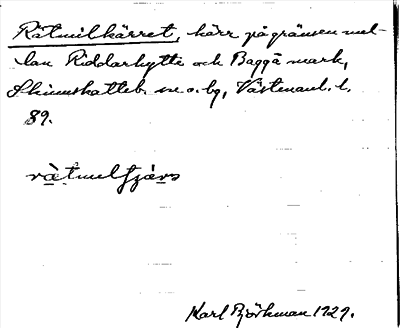 Rätmilkärret, kärr på gränsen mel-
lan Riddarhytte och Baggå mark,
Skinnskatteb. s. o. bg, Västmanl. l.
89.
Karl Björkman 1929.